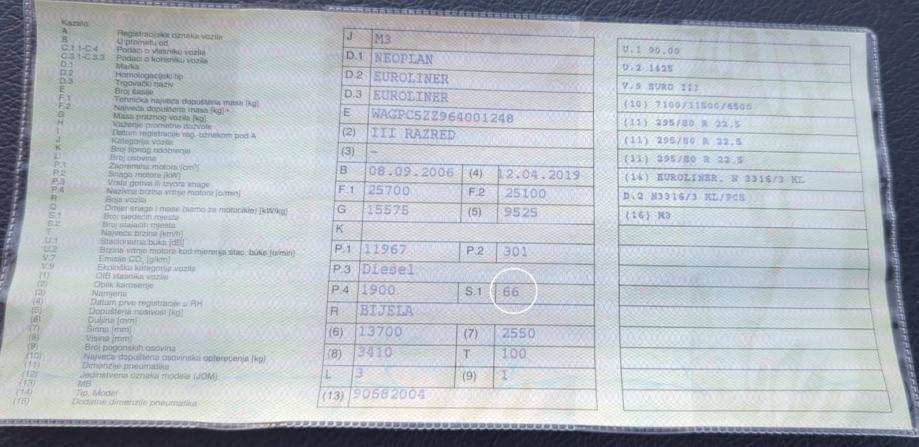 Kazalo:
A Registracijska oznaka vozila
B U prometu od
C.1.1-C.4 Podaci o vlasniku vozila
C.3.1-C.3.3 Podaci o korisniku vozila
D.1 Marka
D.2 Homologacijski tip
D.3 Trgovački naziv
E Broj šasije
F.1 Tehnička najveća dopuštena masa [kg]
F.2 Najveća dopuštena masa [kg]
G Masa praznog vozila [kg]
H Važenje prometne dozvole
I Datum registracije reg. oznakom pod A
J Kategorija vozila
K Broj tipnog odobrenja
L Broj osovina
P.1 Zapremina motora [cm³]
P.2 Snaga motora [kW]
P.3 Vrsta goriva ili izvora snage
P.4 Nazivna brzina vrtnje motora [o/min]
R Boja vozila
Q Omjer snage i mase (samo za motocikle) [kW/kg]
S.1 Broj sjedećih mjesta
S.2 Broj stajaćih mjesta
T Najveća brzina [km/h]
U.1 Stacionarna buka [dB]
U.2 Brzina vrtnje motora kod mjerenja stac. buke [o/min]
V.7 Emisija CO₂ [g/km]
V.9 Ekološka kategorija vozila
(1) OIB vlasnika vozila
(2) Oblik karoserije
(3) Namjena
(4) Datum prve registracije u RH
(5) Dopuštena nosivost [kg]
(6) Duljina [mm]
(7) Širina [mm]
(8) Visina [mm]
(9) Broj pogonskih osovina
(10) Najveća dopuštena osovinska opterećenja [kg]
(11) Dimenzije pneumatika
(12) Jedinstvena oznaka modela (JOM)
(13) MB
(14) Tip, Model
(15) Dodatne dimenzije pneumatika
J M3
D.1 NEOPLAN
D.2 EUROLINER
D.3 EUROLINER
E WAGPC5ZZ964001248
(2) III RAZRED
(3) –
B 08.09.2006 (4) 12.04.2019
F.1 25700 F.2 25100
G 15575 (5) 9525
K
P.1 11967 P.2 301
P.3 Diesel
P.4 1900 S.1 66
R BIJELA
(6) 13700 (7) 2550
(8) 3410 T 100
L 3 (9) 1
(13) 90582004
U.1 90,00
U.2 1425
V.9 EURO III
(10) 7100/11500/6500
(11) 295/80 R 22.5
(11) 295/80 R 22.5
(11) 295/80 R 22.5
(14) EUROLINER, N 3316/3 KL
D.2 N3316/3 KL/PC5
(16) M3